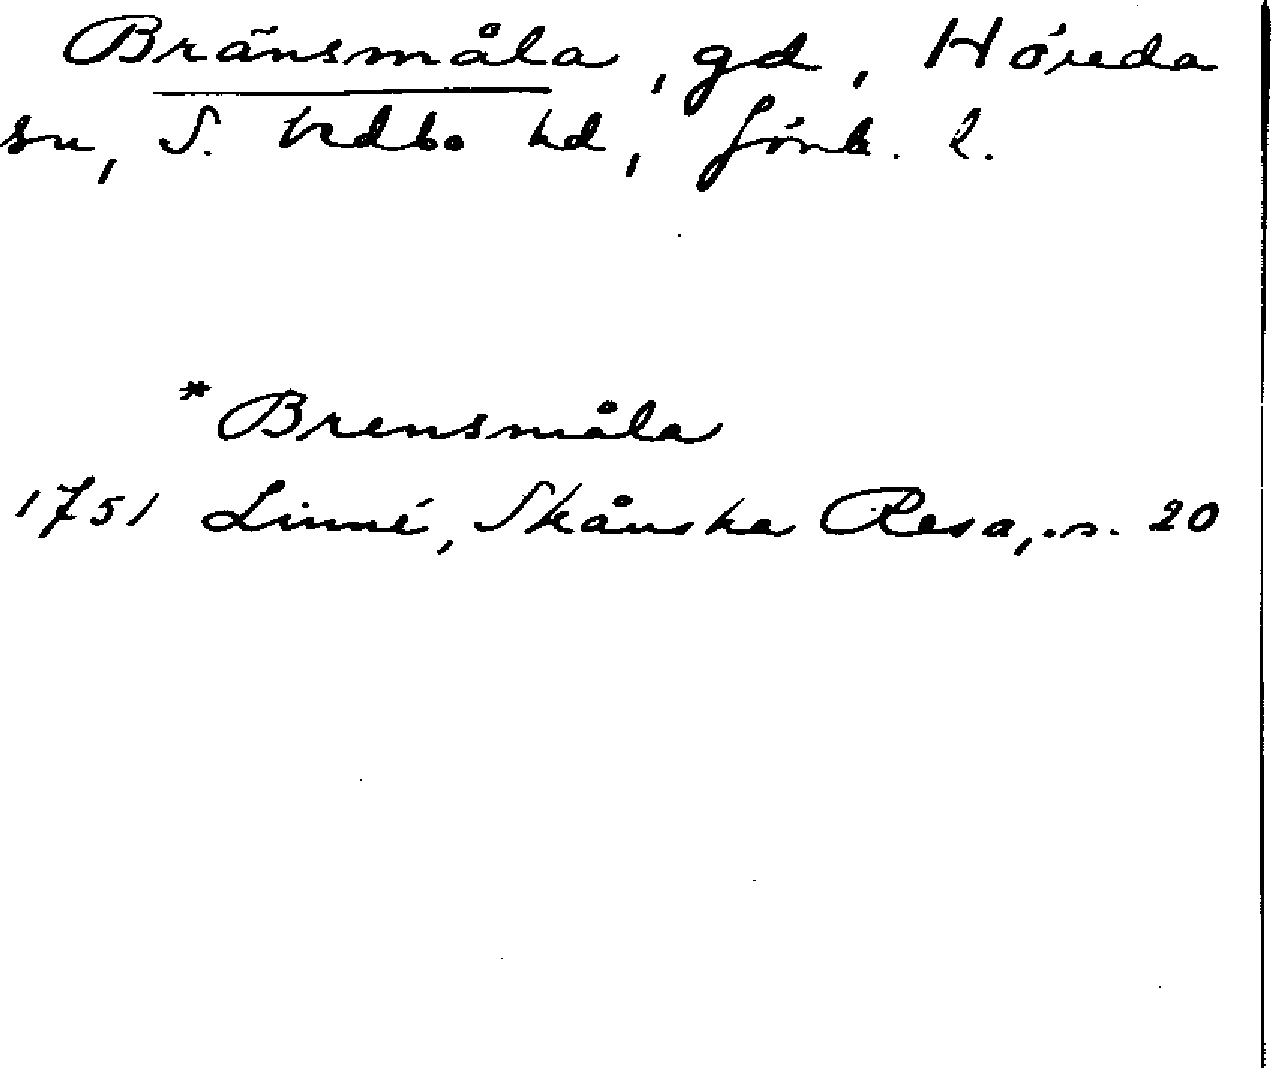 Bränsmåla, gd, Höreda
sn, S. Vedbo hd, Jönk. l.
*Brensmåla
1751 Linné, Skånska Resa, s. 20